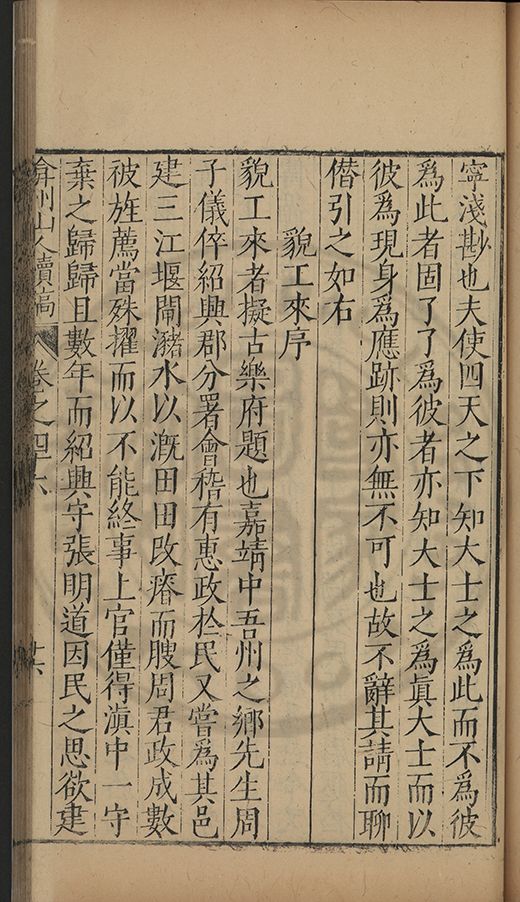 寧淺尠也夫使四天之下知大士之爲此而不爲彼
爲此者固了了爲彼者亦知大士之爲眞大士而以
彼爲現身爲應跡則亦無不可也故不辭其請而聊
僭引之如右
貌工來序
貌工來者擬古樂府題也嘉靖中吾州之鄉先生周
子儀倅紹興郡分署會稽有惠政於民又嘗爲其邑
建三江堰閘瀦水以漑田田改瘠而腴周君政成數
被旌薦當殊擢而以不能終事上官僅得滇中一守
棄之歸歸且數年而紹興守張明道因民之思欲建
弇州山人續稿 卷之四六 廿六